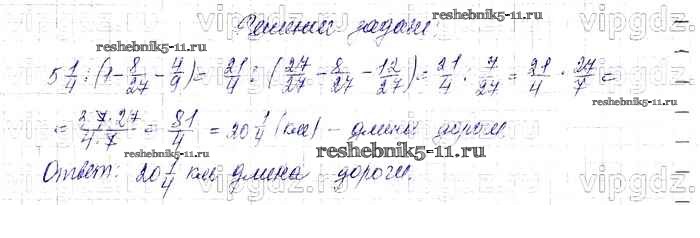 vipgdz.ru vipgdz.ru vipgdz.ru
Решений задач:
reshebnik5-11.ru reshebnik5-11.ru
5 1/4 : (1 - 8/27 - 4/9) = 21/4 : (27/27 - 8/27 - 12/27) = 21/4 : 7/27 = 21/4 · 27/7 =
= 27·27/4·7 = 81/4 = 20 1/4 (км) - длина дороги.
reshebnik5-11.ru reshebnik5-11.ru
Ответ: 20 1/4 км длина дороги.
reshebnik5-11.ru
vipgdz.ru vipgdz.ru vipgdz.ru